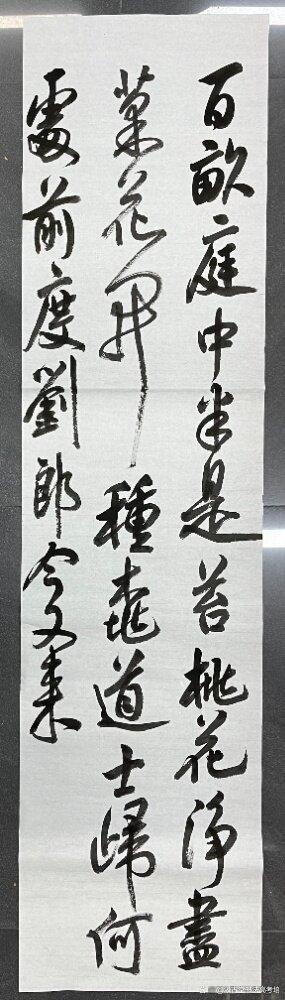 百畝庭中半是苔桃花淨盡
菜花開種桃道士歸何
處前度劉郎今又来